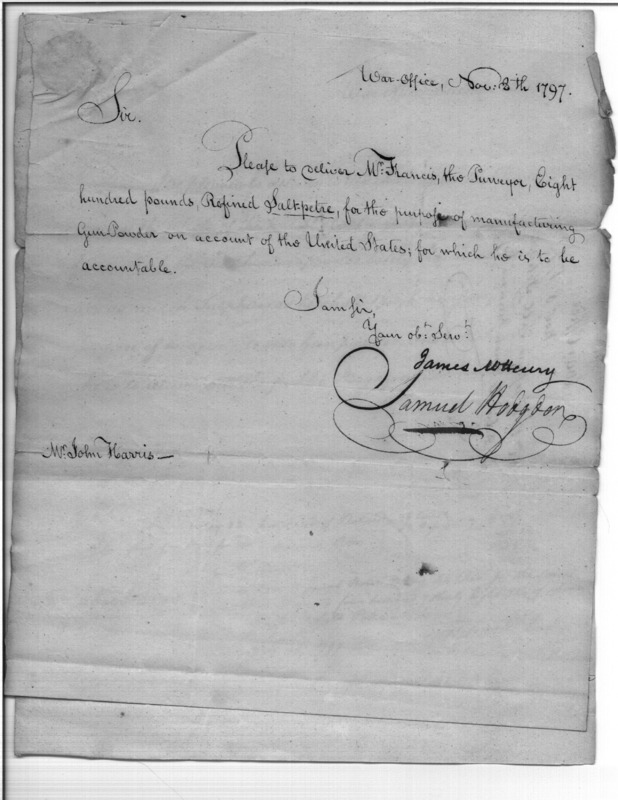 War-Office, Nov: 8th 1797.
Sir.
Please to deliver Mr. Francis, the Purveyor, Eight
hundred pounds, Refined Saltpetre, for the purpose of manufacturing
Gun Powder on account of the United States; for which he is to be
accountable.
I am Sir,
Your obt. Servt.
James McHenry
Samuel Hodgdon
Mr. John Harris—